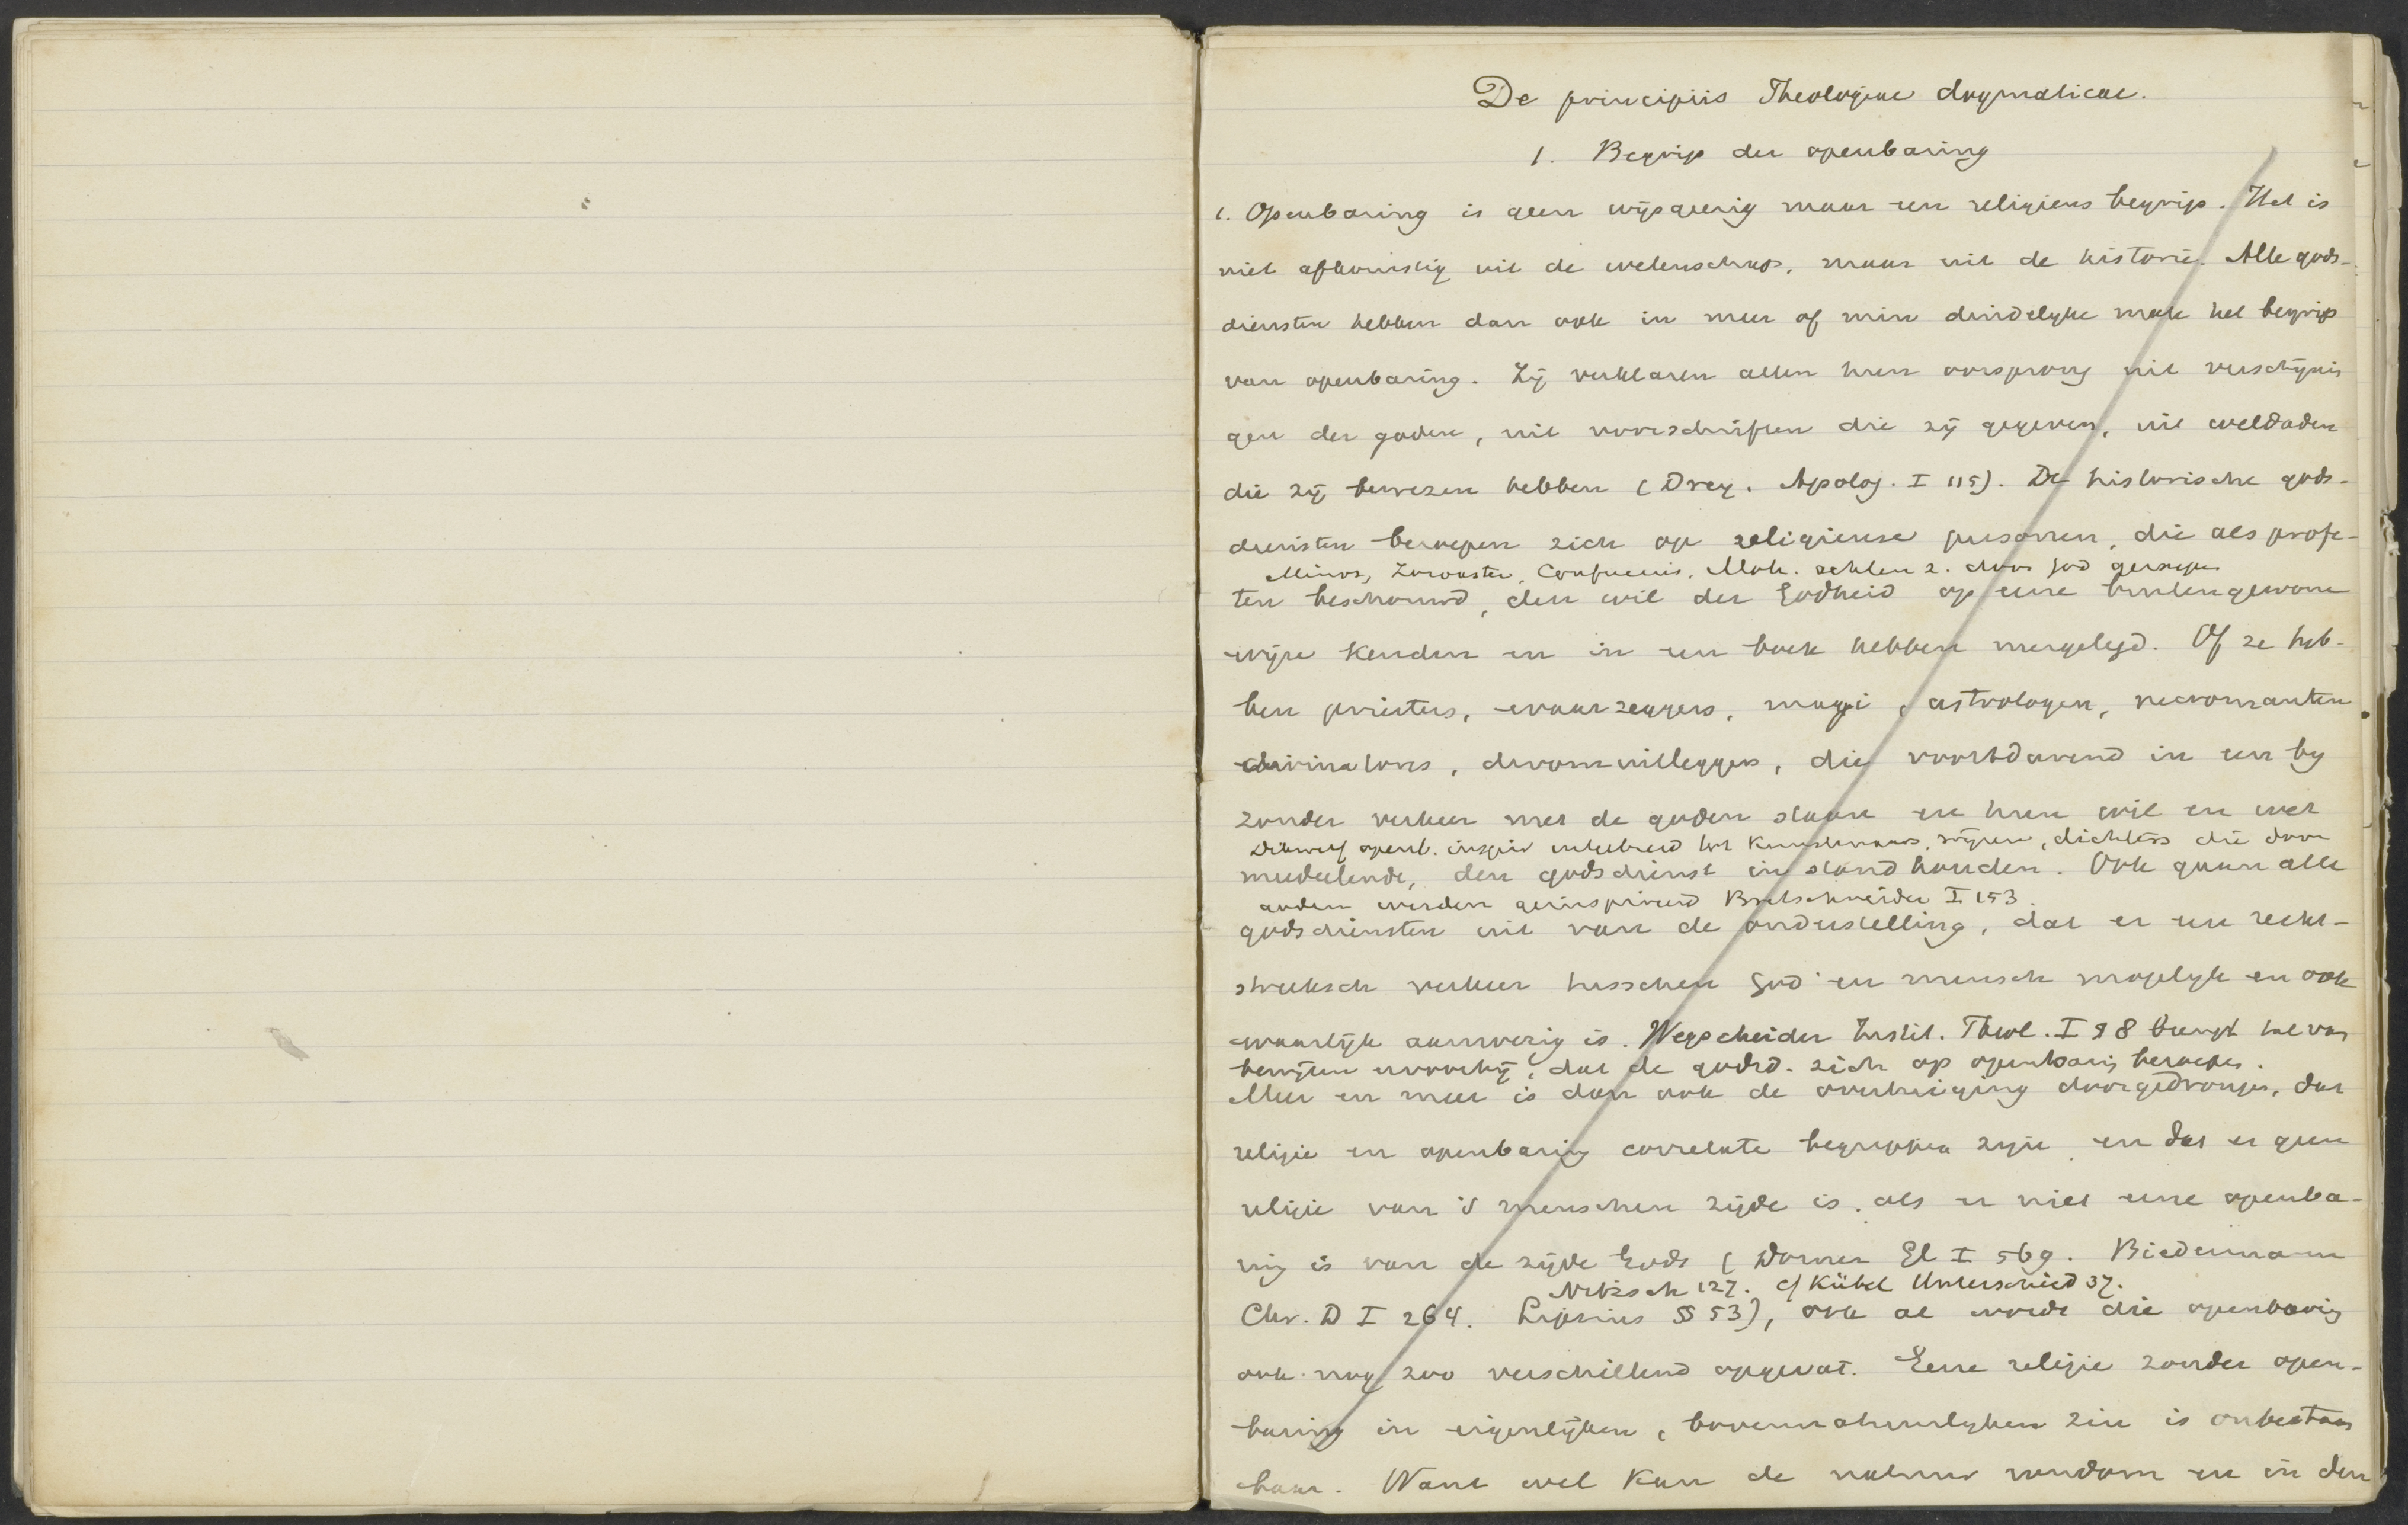 De principiis Theologiae dogmaticae.
1. Begrip der openbaring
1. Openbaring is geen wijsgeerig maar een religieus begrip. Het is
niet afkomstig uit de wetenschap, maar uit de historie. Alle gods-
diensten hebben dan ook in meer of min duidelyke mate het begrip
van openbaring. Zij verklaren allen hun oorsprong uit verschijnin
gen der goden, uit voorschriften die zij gegeven, uit weldaden
die zij bewezen hebben (Drey. Apolog. I 115). De historische gods-
diensten beroepen zich op religieuse personen, die als profe-
Minos, Zoroaster, Confucius, Moh. achten z. door God geroepen
ten beschouwd, den wil der Godheid op eene buitengewone
wijze kenden en in een boek hebben neergelegd. Of ze heb-
ben priesters, waarzeggers, magi, astrologen, necromanten
divinatores, droomuitleggers, die voortdurend in een by
zonder verkeer met de goden staan en hun wil en wet
Dikwerf openb. inspir uitgebreid tot kunstenaars, wijzen, dichters die door
mededeelende, den godsdienst in stand houden. Ook gaan alle
goden werden geinspireerd Bretschneider I 153.
godsdiensten uit van de onderstelling, dat er een recht-
streeksch verkeer tusschen God en mensch mogelyk en ook
waarlijk aanwezig is. Wegscheider Instit. Theol. I § 8 brengt tal van
bewijzen waarbij, dat de godsd. zich op openbaring beroepen.
Meer en meer is dan ook de overtuiging doorgedrongen, dat
religie en openbaring correlate begrippen zijn en dat er geen
religie van 's menschen zijde is, als er niet eene openba-
ring is van de zijde Gods (Dorner Gl I 569. Biedermann
Nitzsch 127. cf Kübel Unterschied 37.
Chr. D I 264. Lipsius § 53), ook al wordt die openbaring
ook nog zoo verschillend opgevat. Eene religie zonder open-
baring in eigenlijken, bovennatuurlyken zin is onbestaan
baar. Want wel kan de natuur rondom en in den